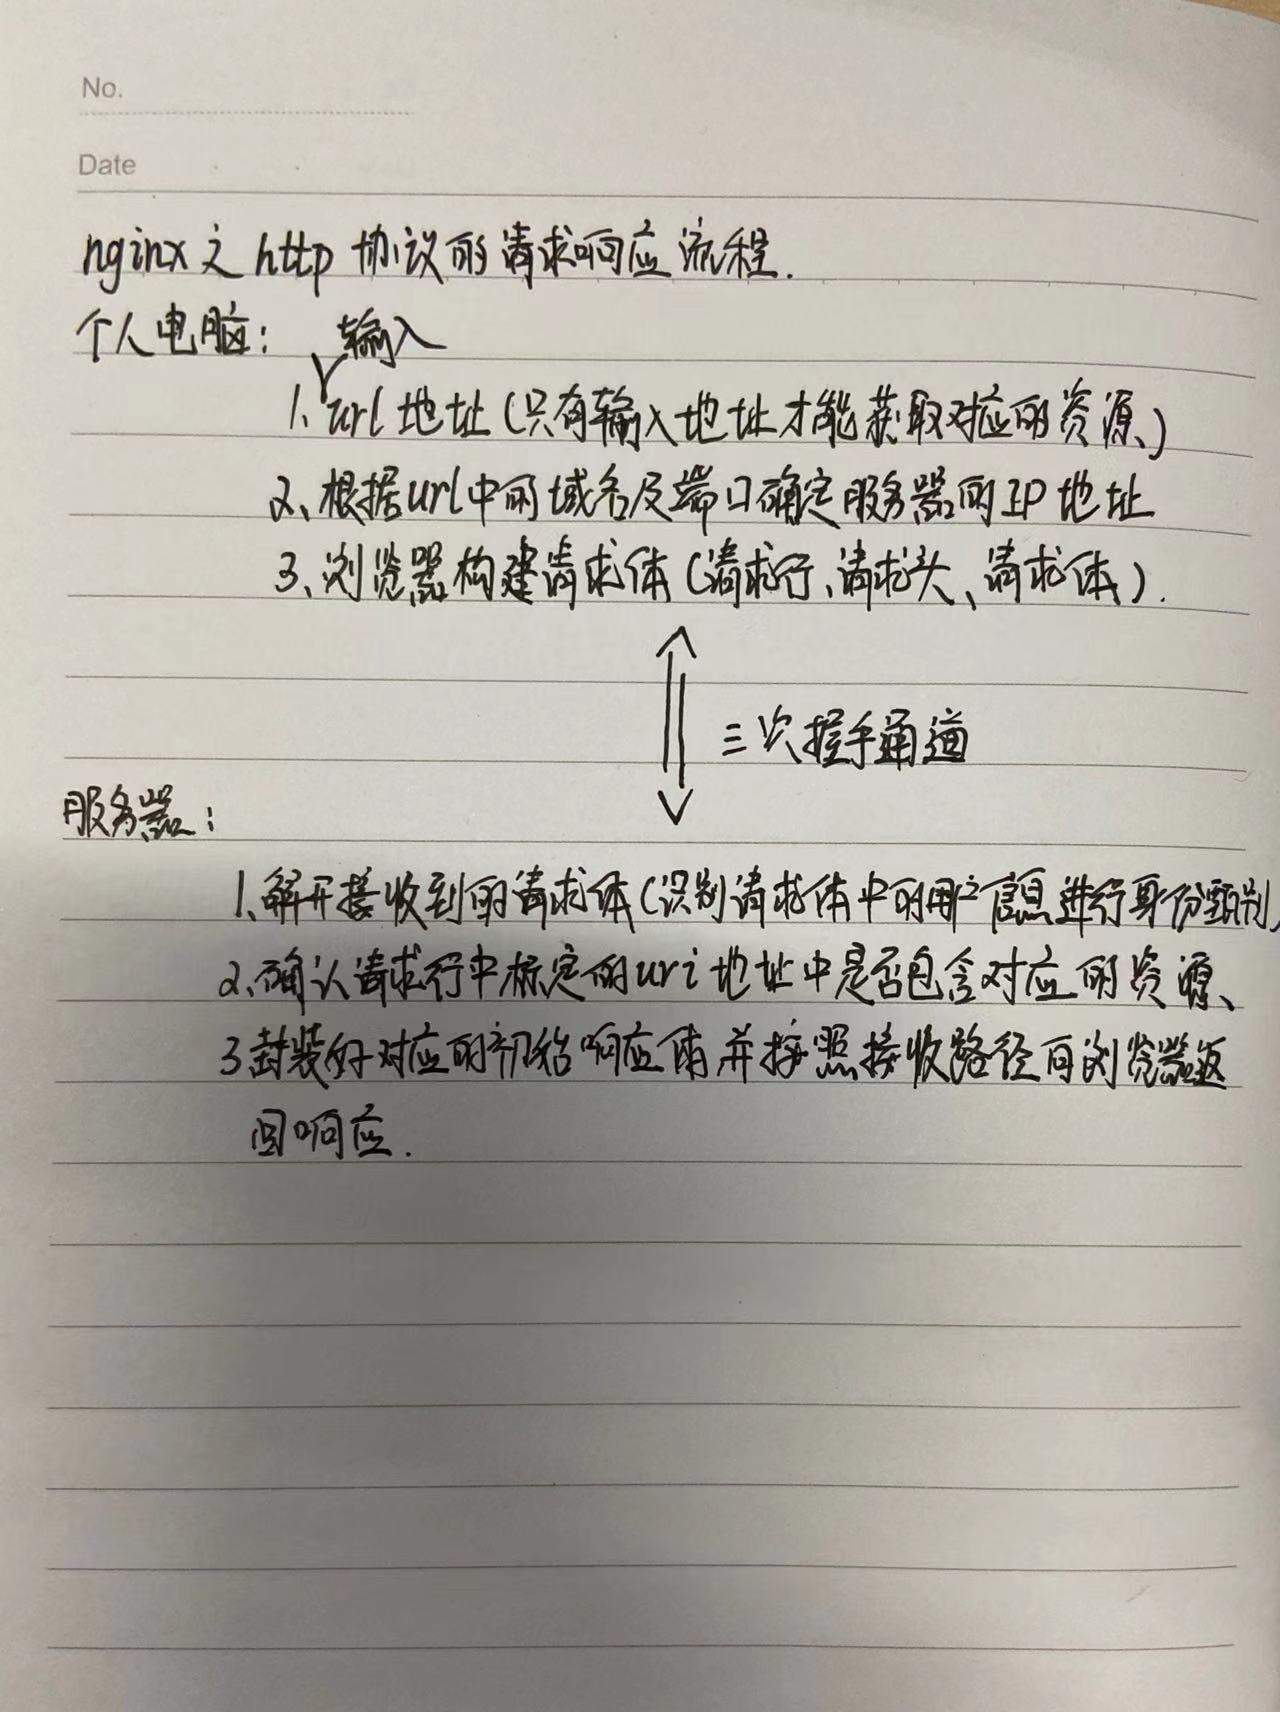 No.
Date
nginx之http协议的请求响应流程.
个人电脑: 输入
1、url地址(只有输入地址才能获取对应的资源、)
2、根据url中的域名及端口确定服务器的IP地址
3、浏览器构建请求体(请求行、请求头、请求体).
三次握手通道
服务器:
1、解开接收到的请求体(识别请求体中的用户信息进行身份甄别,
2、确认请求行中标定的uri地址中是否包含对应的资源、
3封装好对应的初始响应体并按照接收路径向浏览器返
回响应.